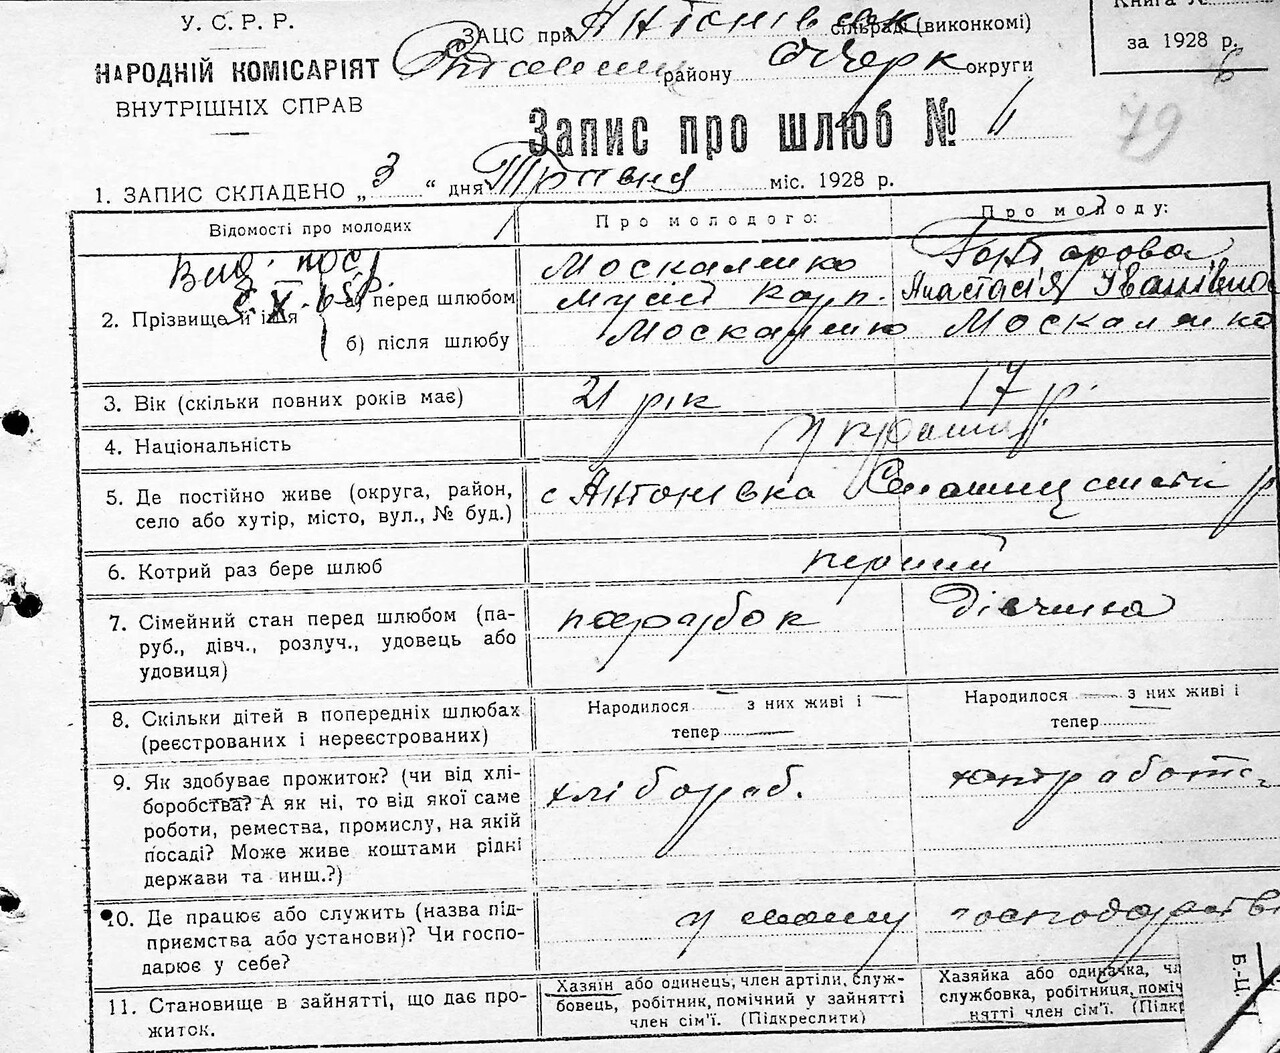 У. С. Р. Р.
НАРОДНІЙ КОМІСАРІЯТ
ВНУТРІШНІХ СПРАВ
ЗАЦС при Антонівськ сільраді (виконкомі)
району Черк округи
Книга №
за 1928 р.
6
79
Запис про шлюб № 11
1. ЗАПИС СКЛАДЕНО „3“ дня Травня міс. 1928 р.
Відомості про молодих
Про молодого:
Про молоду:
2. Прізвище й ім'я
а) перед шлюбом
Москаленко
Анастасія Іванівна
б) після шлюбу
Москаленко
Москаленко
3. Вік (скільки повних років має)
21 рік
17 р.
4. Національність
5. Де постійно живе (округа, район,
село або хутір, місто, вул., № буд.)
с Антонівка
6. Котрий раз бере шлюб
перший
7. Сімейний стан перед шлюбом (па-
руб., дівч., розлуч., удовець або
удовиця)
парубок
дівчина
8. Скільки дітей в попередніх шлюбах
(реєстрованих і нереєстрованих)
Народилося — з них живі і —
тепер —
Народилося — з них живі і
тепер
9. Як здобуває прожиток? (чи від хлі-
боробства? А як ні, то від якої саме
роботи, ремества, промислу, на якій
посаді? Може живе коштами рідні
держави та инш.?)
хлібороб.
10. Де працює або служить (назва під-
приємства або установи)? Чи госпо-
дарює у себе?
у своєму господарстві
11. Становище в зайнятті, що дає про-
житок.
Хазяін або одинець, член артіли, служ-
бовець, робітник, помічний у зайнятті
член сім'ї. (Підкреслити)
Хазяйка або одиначка, чл
службовка, робітниця, поміч
нятті член сім'ї. (Підкр
Б.-Ц.